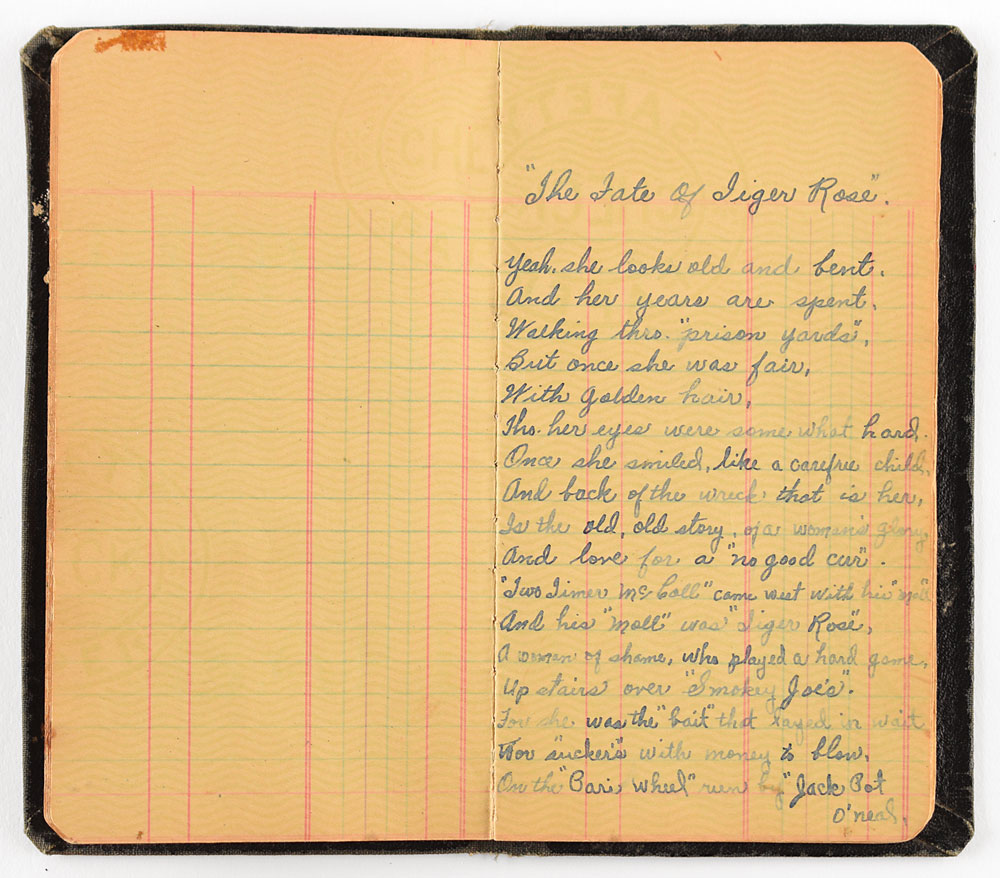 "The Fate Of Tiger Rose".
Yeah, she looks old and bent.
And her years are spent,
Walking thro. "prison yards",
But once she was fair,
With golden hair,
Tho. her eyes were some what hard.
Once she smiled, like a carefree child,
And back of the wreck that is her,
Is the old, old story, of a woman's glory,
And love for a "no good cur".
"Two Timer McColl" came west with his "moll"
And his "moll" was "Tiger Rose",
A woman of shame, who played a hard game,
Up stairs over "Smokey Joe's".
For she was the "bait" that layed in wait
For "sucker's" with money to blow,
On the "Paris wheel" run by "Jack Pot
O'neal,
SAFETY